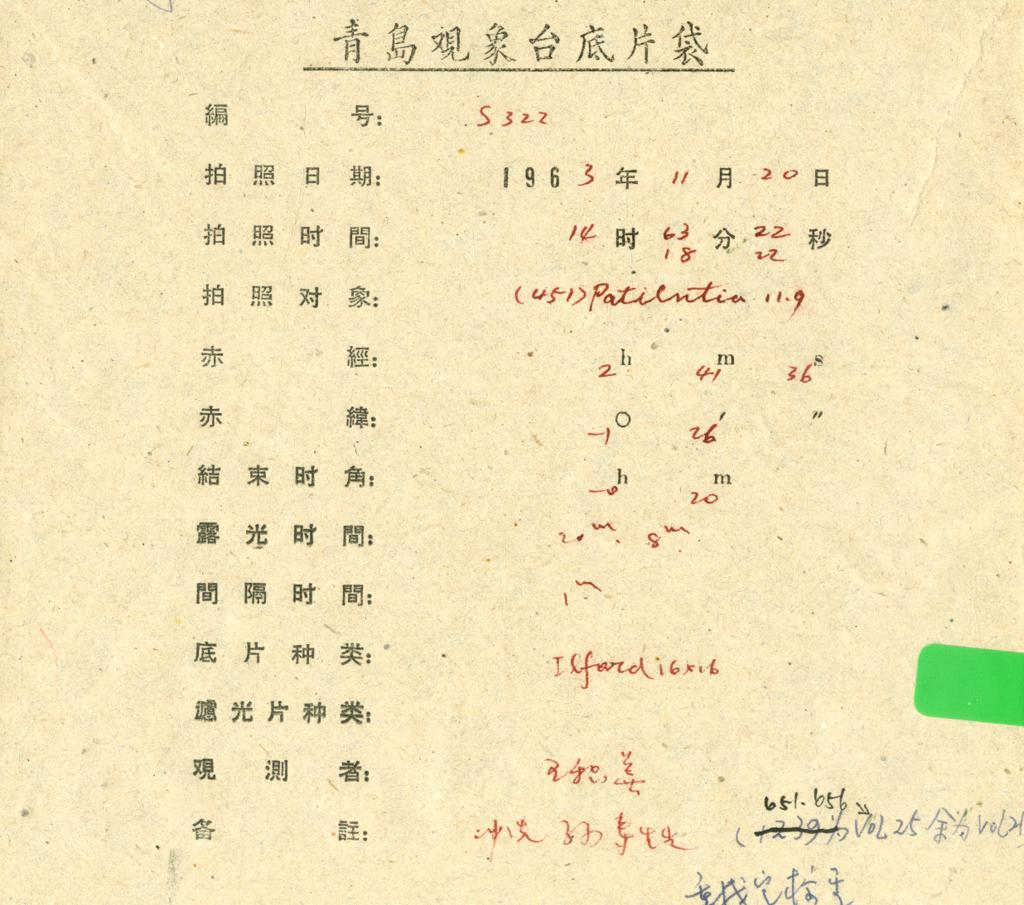 青島观象台底片袋
編号: S 322
拍照日期: 1963年 11月 20日
拍照时間: 14时 63分 22秒
18 22
拍照对象: (451) Patientia 11.9
赤經: 2h 41m 36s
赤緯: -1° 26′ ″
結束时角: -0h 20m
露光时間: 20m. 8m
間隔时間: 1m
底片种类: Ilford 16×16
濾光片种类:
观測者: 王
备註: 冲洗 孙寿
651-656
(1239为 VOL 25 余为 VOL 21